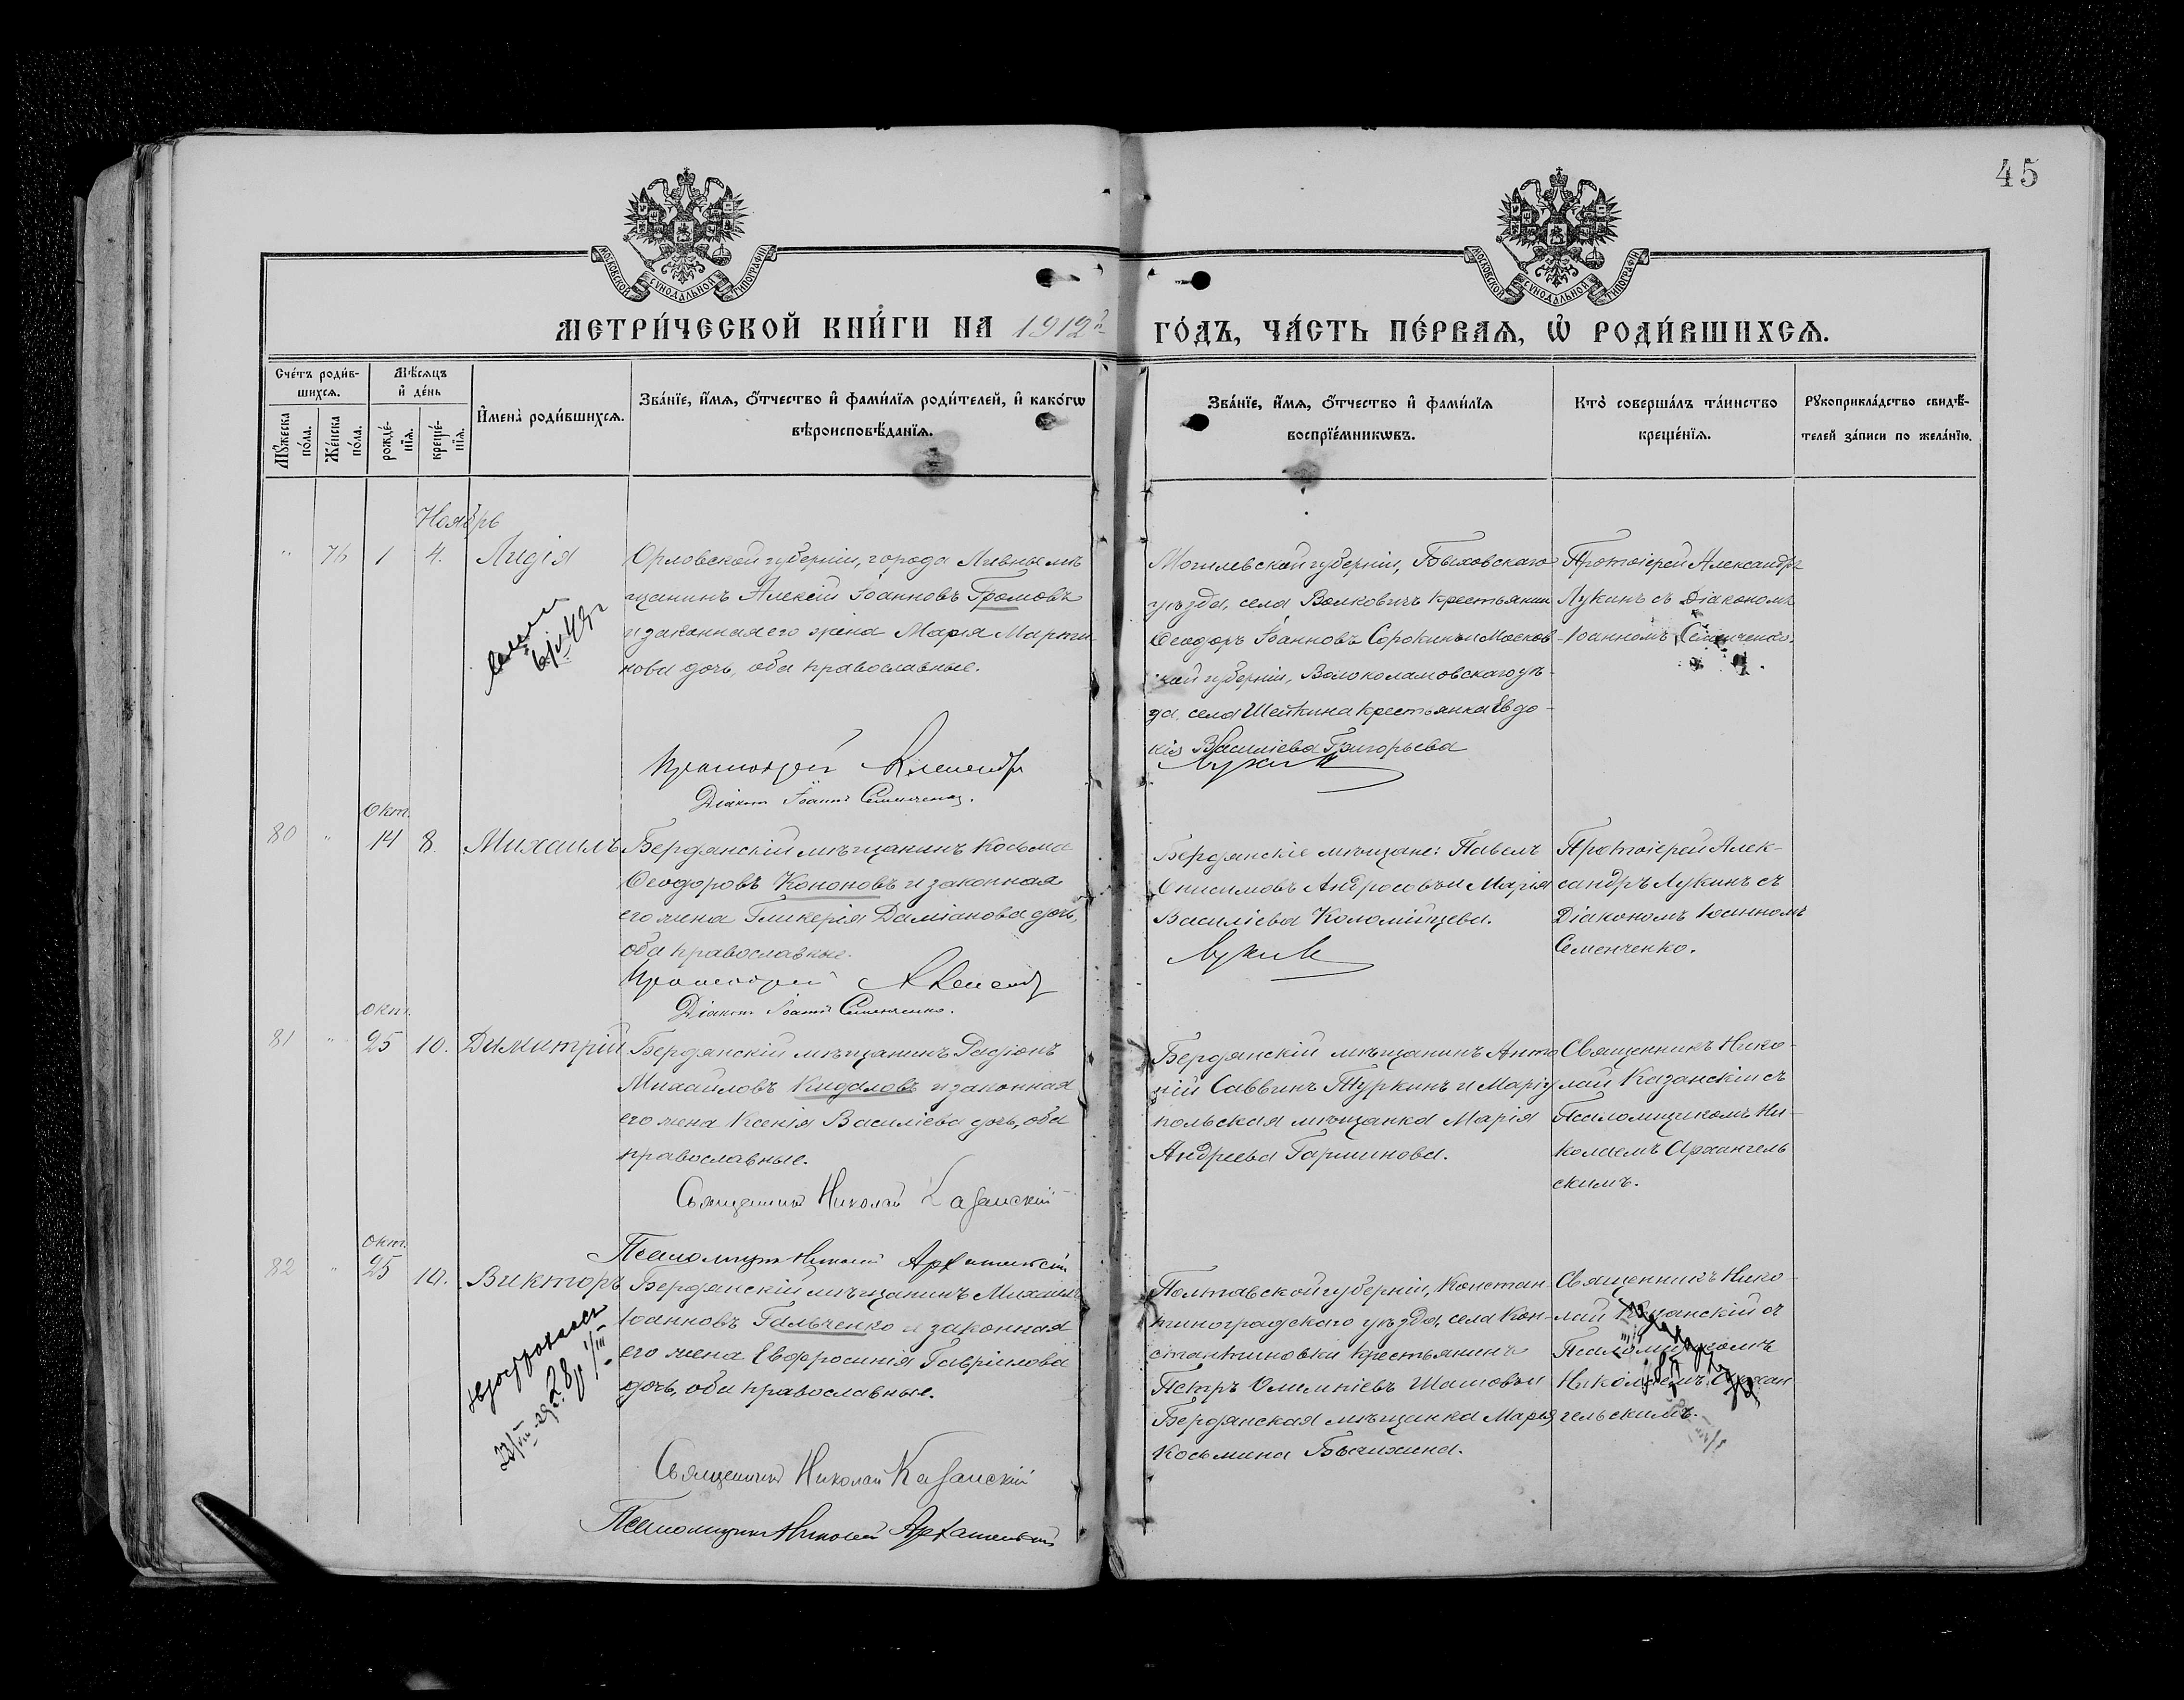 45
МОСКОВСКОЙ СѴНОДАЛЬНОЙ ТИПОГРАФІИ
МОСКОВСКОЙ СѴНОДАЛЬНОЙ ТИПОГРАФІИ
МЕТРИ́ЧЕСКОЙ КНИ́ГИ НА 1912й ГО́ДЪ, ЧА́СТЬ ПЕ́РВАѦ, Ѡ РОДИ́ВШИХСѦ.
Сче́тъ роди́в-
шихсѧ.
Мꙋжеска по́ла.
Же́нска по́ла.
Мѣ́сѧцъ
и҆ де́нь
рожде́-
нїѧ.
креще́-
нїѧ.
И҆мена̀ роди́вшихсѧ.
Зва́нїе, и҆́мѧ, ѻ҆́тчество и҆ фами́лїѧ роди́телей, и҆ како́гѡ
вѣроисповѣ́данїѧ.
Зва́нїе, и҆́мѧ, ѻ҆́тчество и҆ фами́лїѧ
воспрїе́мникѡвъ.
Кто̀ соверша́лъ та́инство
креще́нїѧ.
Рꙋкоприкла́дство свидѣ́-
телей за́писи по жела́нїю.
Ноябрь
" 76 1 4. Лидія
Орловской губерніи, города Ливны мѣ
щанинъ Алексій Іоанновъ Громовъ
и законная его жена Марія Марти
нова дочь, оба православные.
Протоіерей Александръ
Діаконъ Іоаннъ Семенченко.
Могилевской губерніи, Быховскаго
уѣзда, села Волковичъ крестьянин
Ѳеодоръ Іоанновъ Сорокинъ и Москов
ской губерніи, Волоколамовскаго уѣ-
зда, села Шейкина крестьянка Евдо-
кія Василіева Григорьева
Лукинъ
Протоіерей Александръ
Лукинъ съ Діакономъ
Іоанномъ Семенченко.
Окт.
80 " 14 8. Михаилъ
Бердянскій мѣщанинъ Косьма
Ѳеодоровъ Кононовъ и законная
его жена Гликерія Даміанова дочь,
оба православные.
Протоіерей Александръ
Діаконъ Іоаннъ Семенченко.
Бердянскіе мѣщане: Павелъ
Онисимовъ Андросовъ и Марія
Василіева Коломійцева.
Лукинъ
Протоіерей Алек-
сандръ Лукинъ съ
Діакономъ Іоанномъ
Семенченко.
окт.
81 " 25 10. Димитрій
Бердянскій мѣщанинъ Радіонъ
Михаиловъ Кидаловъ и законная
его жена Ксенія Василіева дочь, оба
православные.
Священникъ Николай Казанскій
Псаломщикъ Николай Архангельскій
Бердянскій мѣщанинъ Анто
ній Саввинъ Туркинъ и Маріу
польская мѣщанка Марія
Андреева Гаршинова.
Священникъ Нико-
лай Казанскій съ
Псаломщикомъ Ни-
колаемъ Архангель
скимъ.
окт.
82 " 25 10. Викторъ
Бердянскій мѣщанинъ Михаилъ
Іоанновъ Гальченко и законная
его жена Евфросинія Гавріилова
дочь, оба православные.
Священникъ Николай Казанскій
Псаломщикъ Николай Архангельскій
Полтавской губерніи, Констан-
тиноградскаго уѣзда, села Кон-
стантиновки крестьянинъ
Петръ Олимпіевъ Шаповъ и
Бердянская мѣщанка Марія
Косьмина Бычихина.
Священникъ Нико-
лай Казанскій съ
Псаломщикомъ
Николаемъ Архан
гельскимъ.